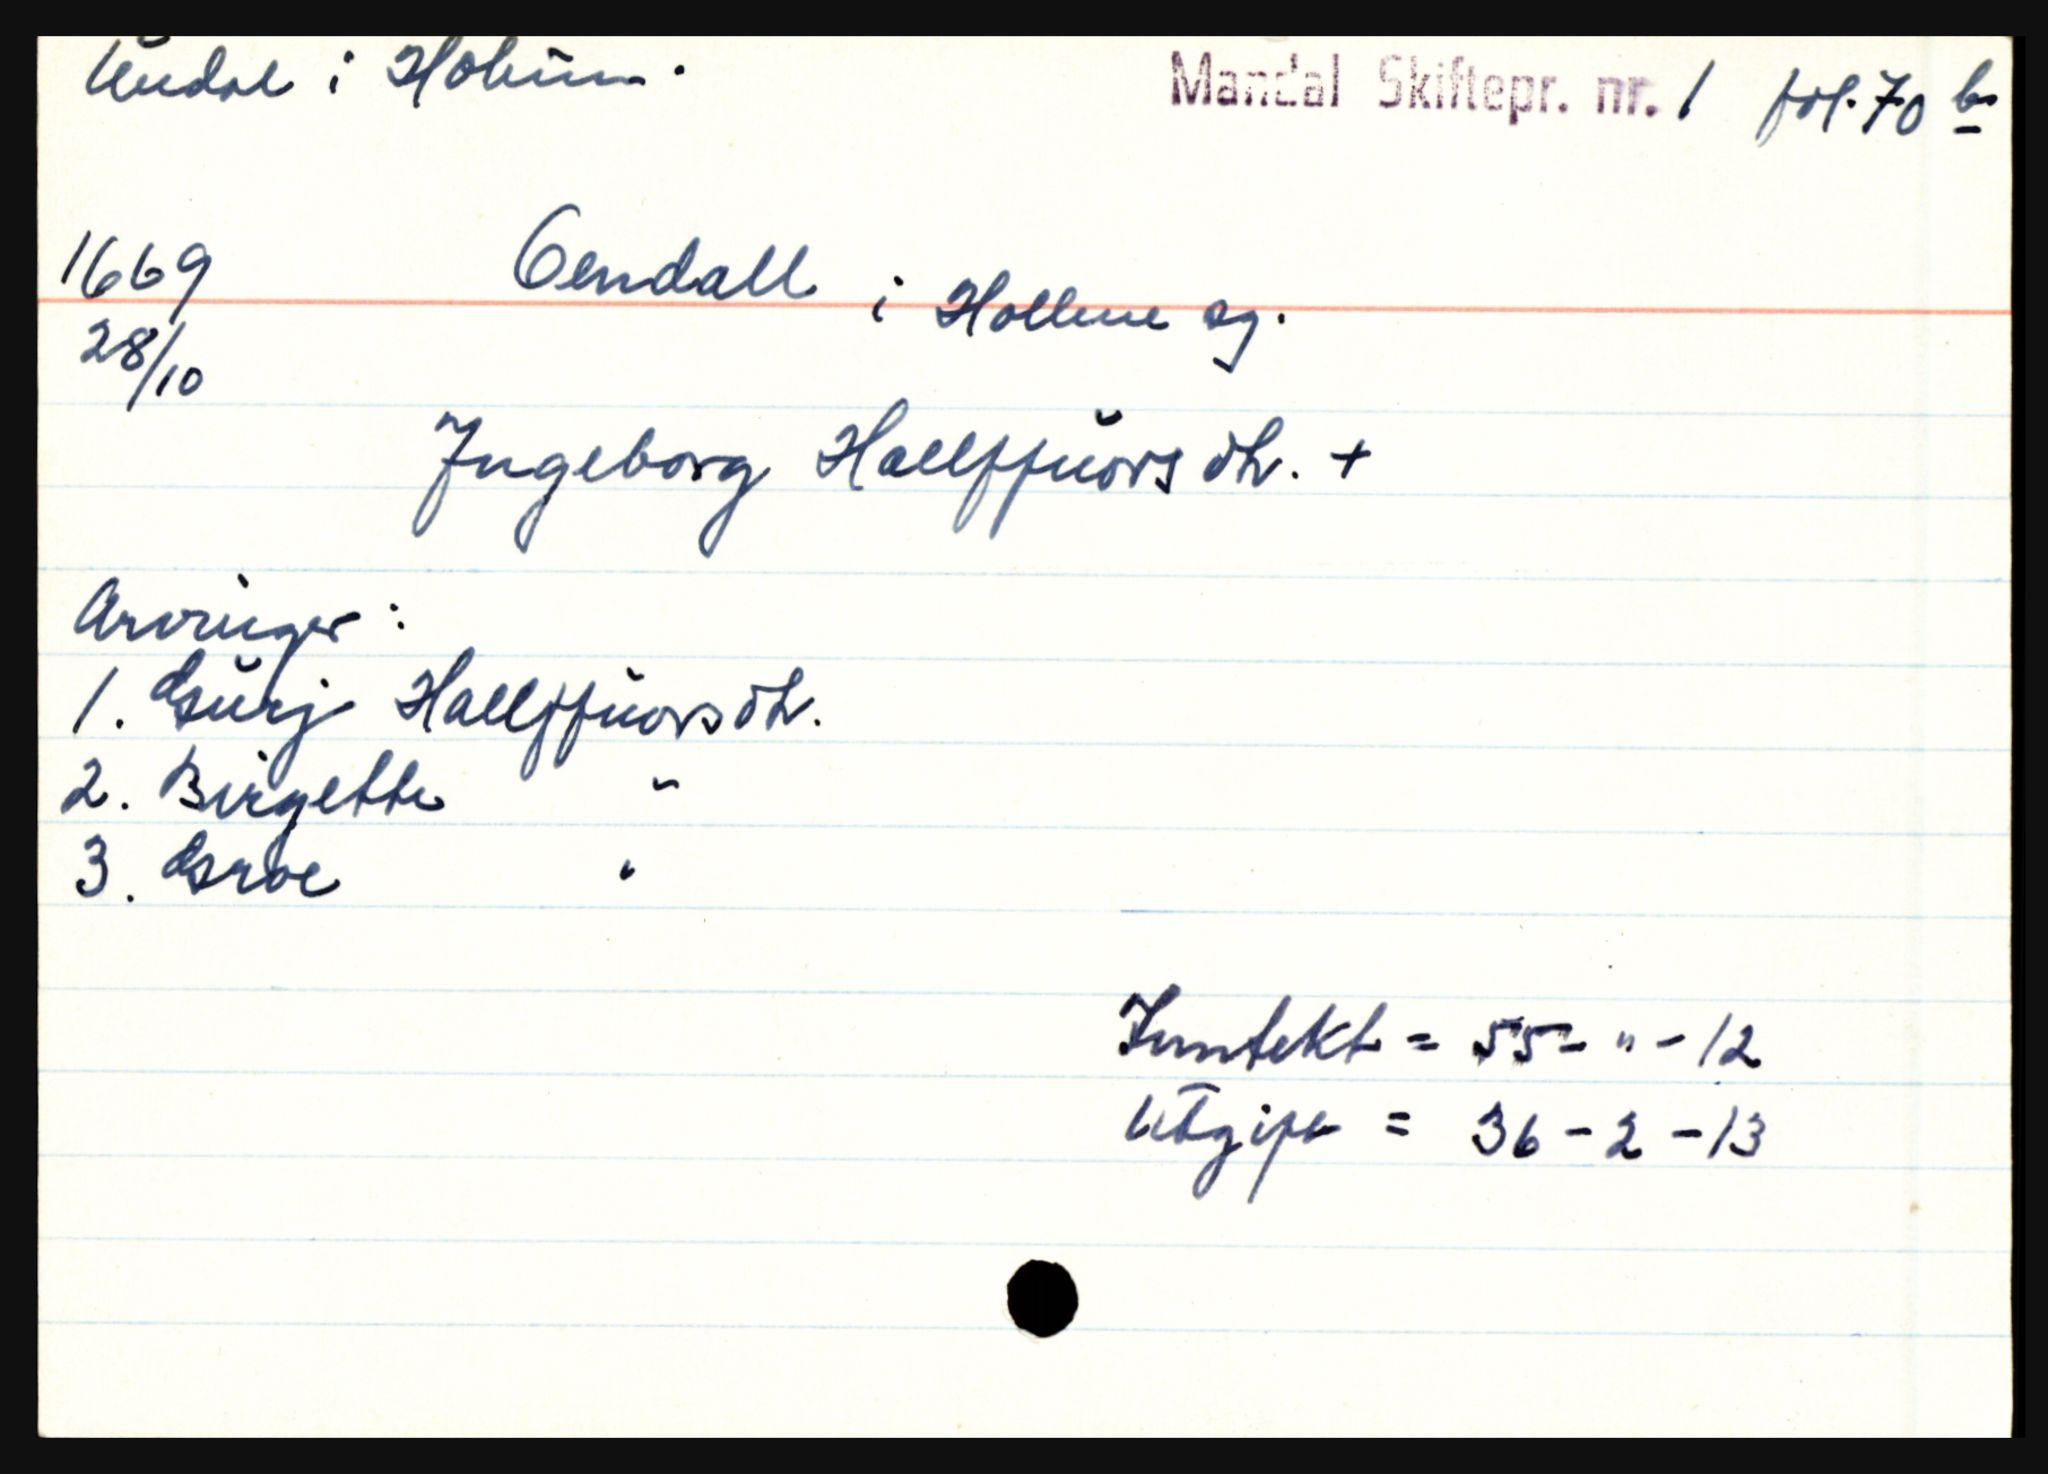 Undal i Holum. Mandal Skiftepr. nr. 1 fol. 70 b
1669 Oendall i Hollme sg.
28/10
Ingeborg Hallffuors dtr. +
Arvinger:
1. Gurj Hallffuors dtr.
2. Birgette "
3. Groe "
Inntekt = 55 - " - 12
Utgift = 36 - 2 - 13